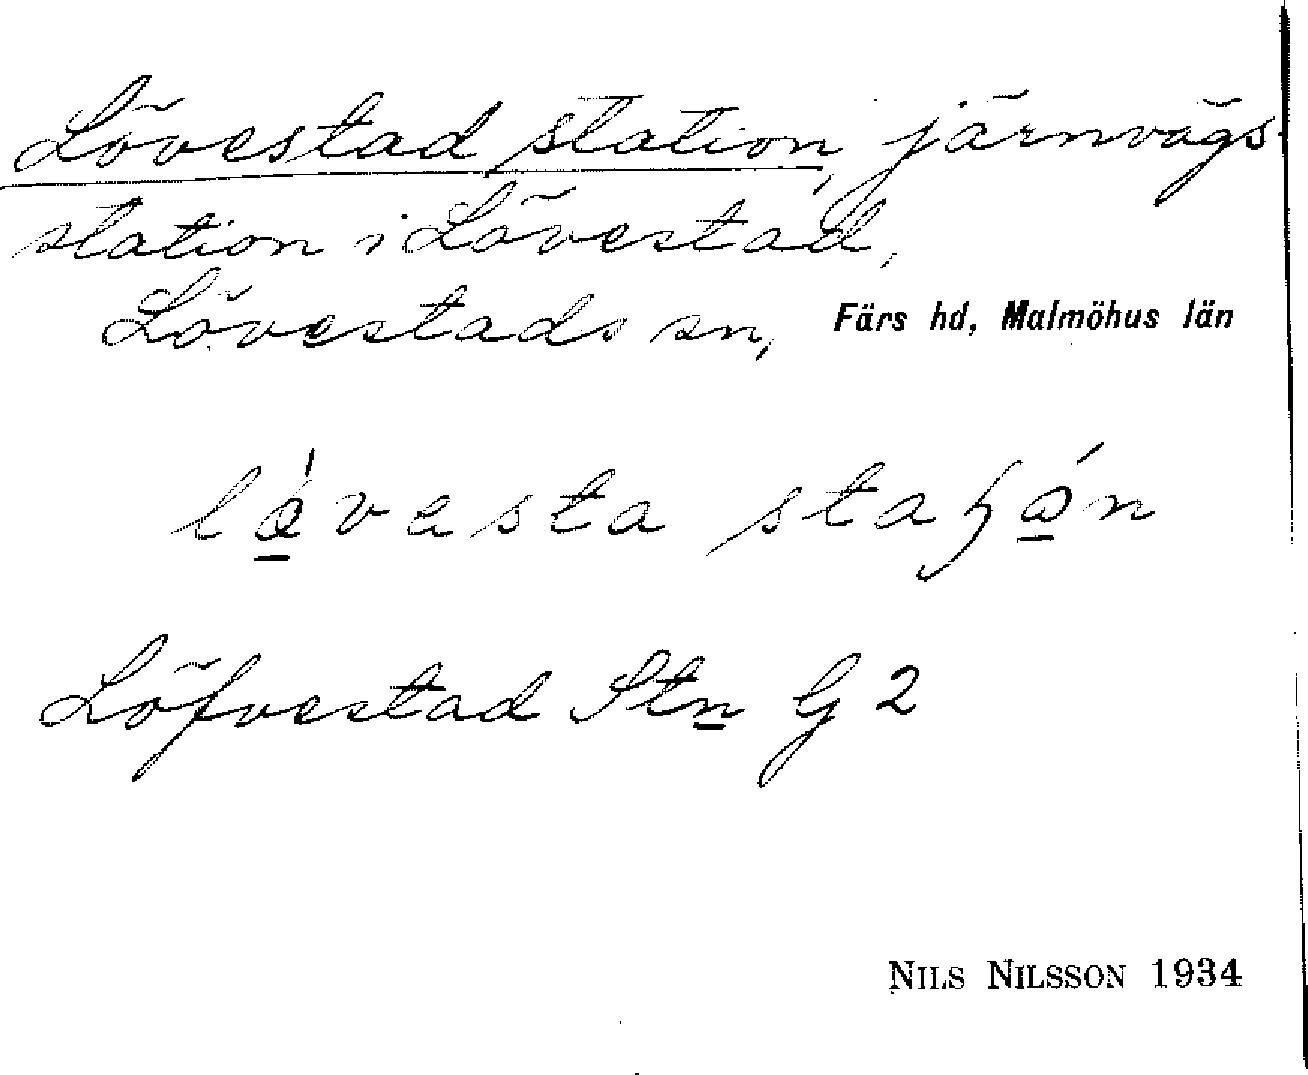 Lövestad station, järnvägs-
station i Lövestad,
Lövestads sn, Färs hd, Malmöhus län
lǿ̱vesta staɧǿ̱n
Löfvestad Stn G 2
NILS NILSSON 1934